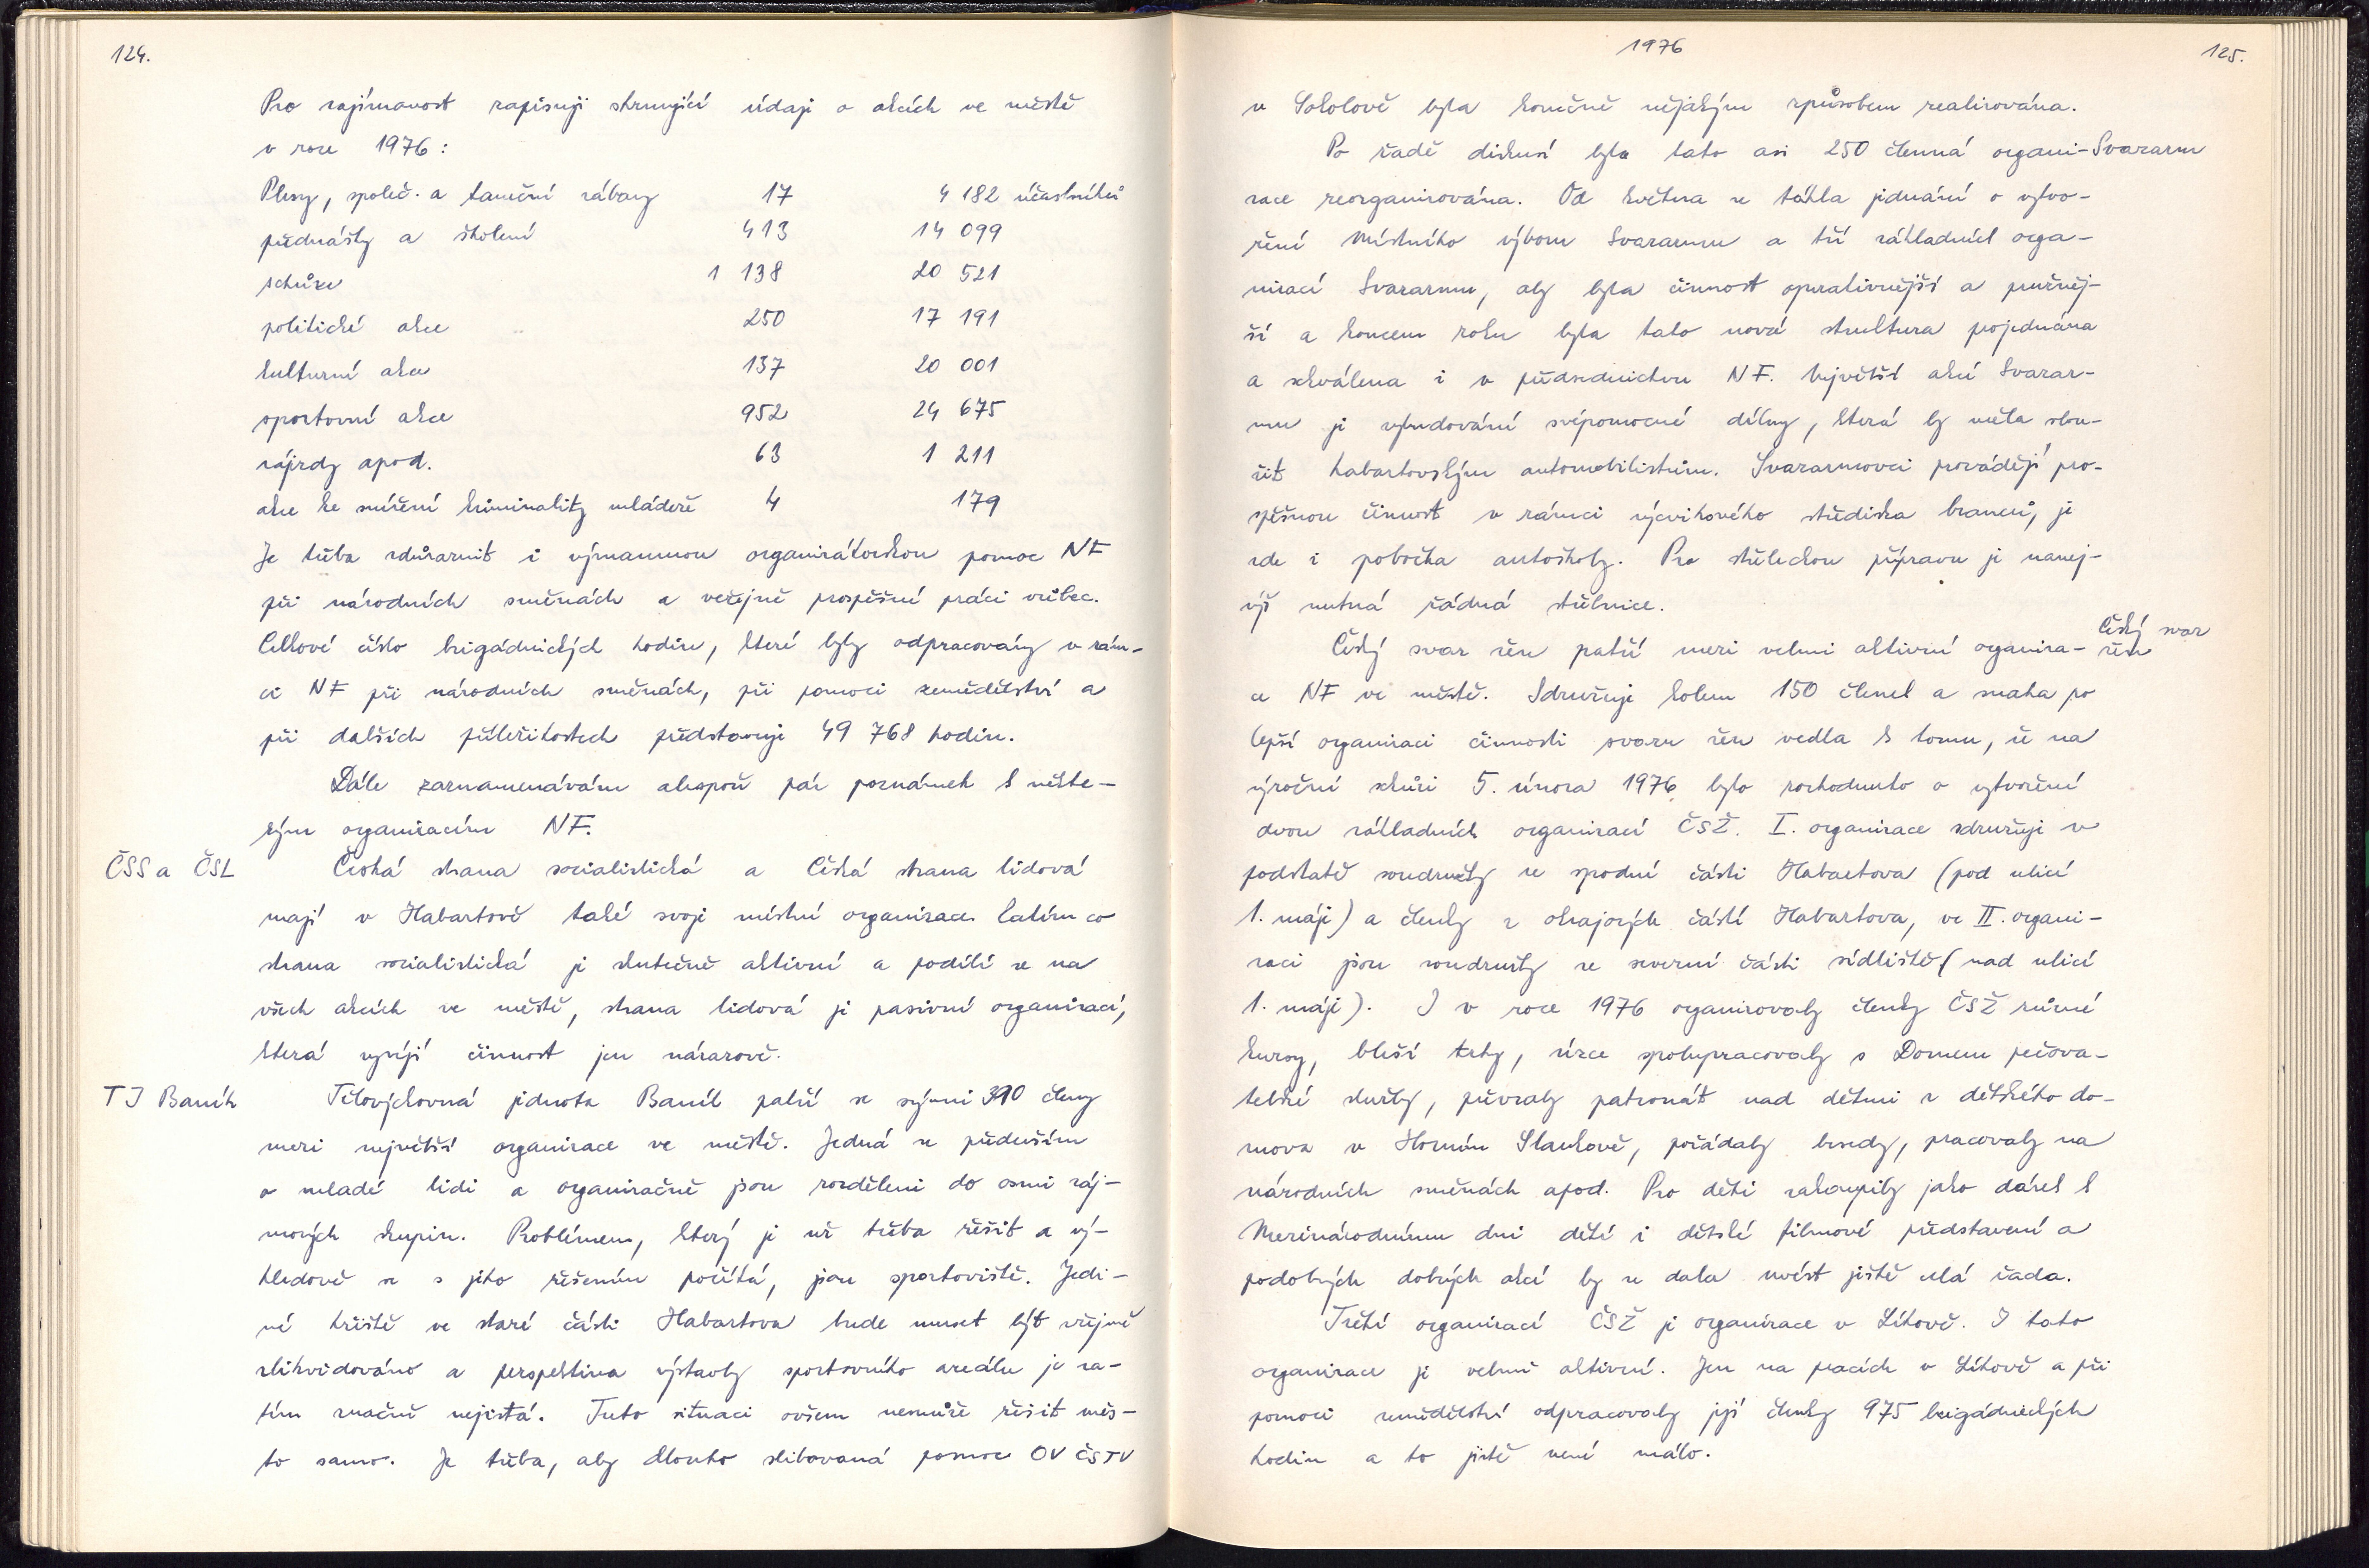 124.
Pro zajímavost zapisuji shrnující údaje o akcích ve městě
v roce 1976:
Plesy, společ. a taneční zábavy 17 4 182 účastníků
přednášky a školení 413 14 099
schůze 1 138 20 521
politické akce 250 17 191
kulturní akce 137 20 001
sportovní akce 952 24 675
zájezdy apod. 63 1 211
akce ke snížení kriminality mládeže 4 179
Je třeba zdůraznit i významnou organizátorskou pomoc NF
při národních směnách a veřejně prospěšné práci vůbec.
Celkové číslo brigádnických hodin, které byly odpracovány v rám-
ci NF při národních směnách, při pomoci zemědělství a
při dalších příležitostech představuje 49 768 hodin.
Dále zaznamenávám alespoň pár poznámek k někte-
rým organizacím NF.
ČSS a ČSL
Česká strana socialistická a Česká strana lidová
mají v Habartově také svoje místní organizace. Zatímco
strana socialistická je skutečně aktivní a podílí se na
všech akcích ve městě, strana lidová je pasivní organizací,
která vyvíjí činnost jen nárazově.
TJ Baník
Tělovýchovná jednota Baník patří se svými 390 členy
mezi největší organizace ve městě. Jedná se především
o mladé lidi a organizačně jsou rozděleni do osmi záj-
mových skupin. Problémem, který je už třeba řešit a vý-
hledově se s jeho řešením počítá, jsou sportoviště. Jedi-
né hřiště ve staré části Habartova bude muset být zřejmě
zlikvidováno a perspektiva výstavby sportovního areálu je za-
tím značně nejistá. Tuto situaci ovšem nemůže řešit měs-
to samo. Je třeba, aby dlouho slibovaná pomoc OV ČSTV
1976
125.
v Sokolově byla konečně nějakým způsobem realizována.
Svazarm
Po řadě diskusí byla tato asi 250 členná organi-
zace reorganizována. Od května se táhla jednání o vytvo-
ření Místního výboru Svazarmu a tří základních orga-
nizací Svazarmu, aby byla činnost operativnější a pružněj-
ší a koncem roku byla tato nová struktura projednána
a schválena i v předsednictvu NF. Největší akcí Svazar-
mu je vybudování svépomocné dílny, která by měla slou-
žit habartovským automobilistům. Svazarmovci provádějí pro-
spěšnou činnost v rámci výcvikového střediska branců, je
zde i pobočka autoškoly. Pro střeleckou přípravu je nanej-
výš nutná řádná střelnice.
Český svaz
žen
Český svaz žen patří mezi velmi aktivní organiza-
ce NF ve městě. Sdružuje kolem 150 členek a snaha po
lepší organizaci činnosti svazu žen vedla k tomu, že na
výroční schůzi 5. února 1976 bylo rozhodnuto o vytvoření
dvou základních organizací ČSŽ. I. organizace sdružuje v
podstatě soudružky ze spodní části Habartova (pod ulicí
1. máje) a členky z okrajových částí Habartova, ve II. organi-
zaci jsou soudružky ze severní části sídliště (nad ulicí
1. máje). I v roce 1976 organizovaly členky ČSŽ různé
kurzy, bleší trhy, úzce spolupracovaly s Domem pečova-
telské služby, převzaly patronát nad dětmi z dětského do-
mova v Horním Slavkově, pořádaly besedy, pracovaly na
národních směnách apod. Pro děti zakoupily jako dárek k
Mezinárodnímu dni dětí i dětské filmové představení a
podobných dobrých akcí by se dala uvést ještě celá řada.
Třetí organizací ČSŽ je organizace v Lítově. I tato
organizace je velmi aktivní. Jen na pracích v Lítově a při
pomoci zemědělství odpracovaly její členky 975 brigádnických
hodin a to jistě není málo.